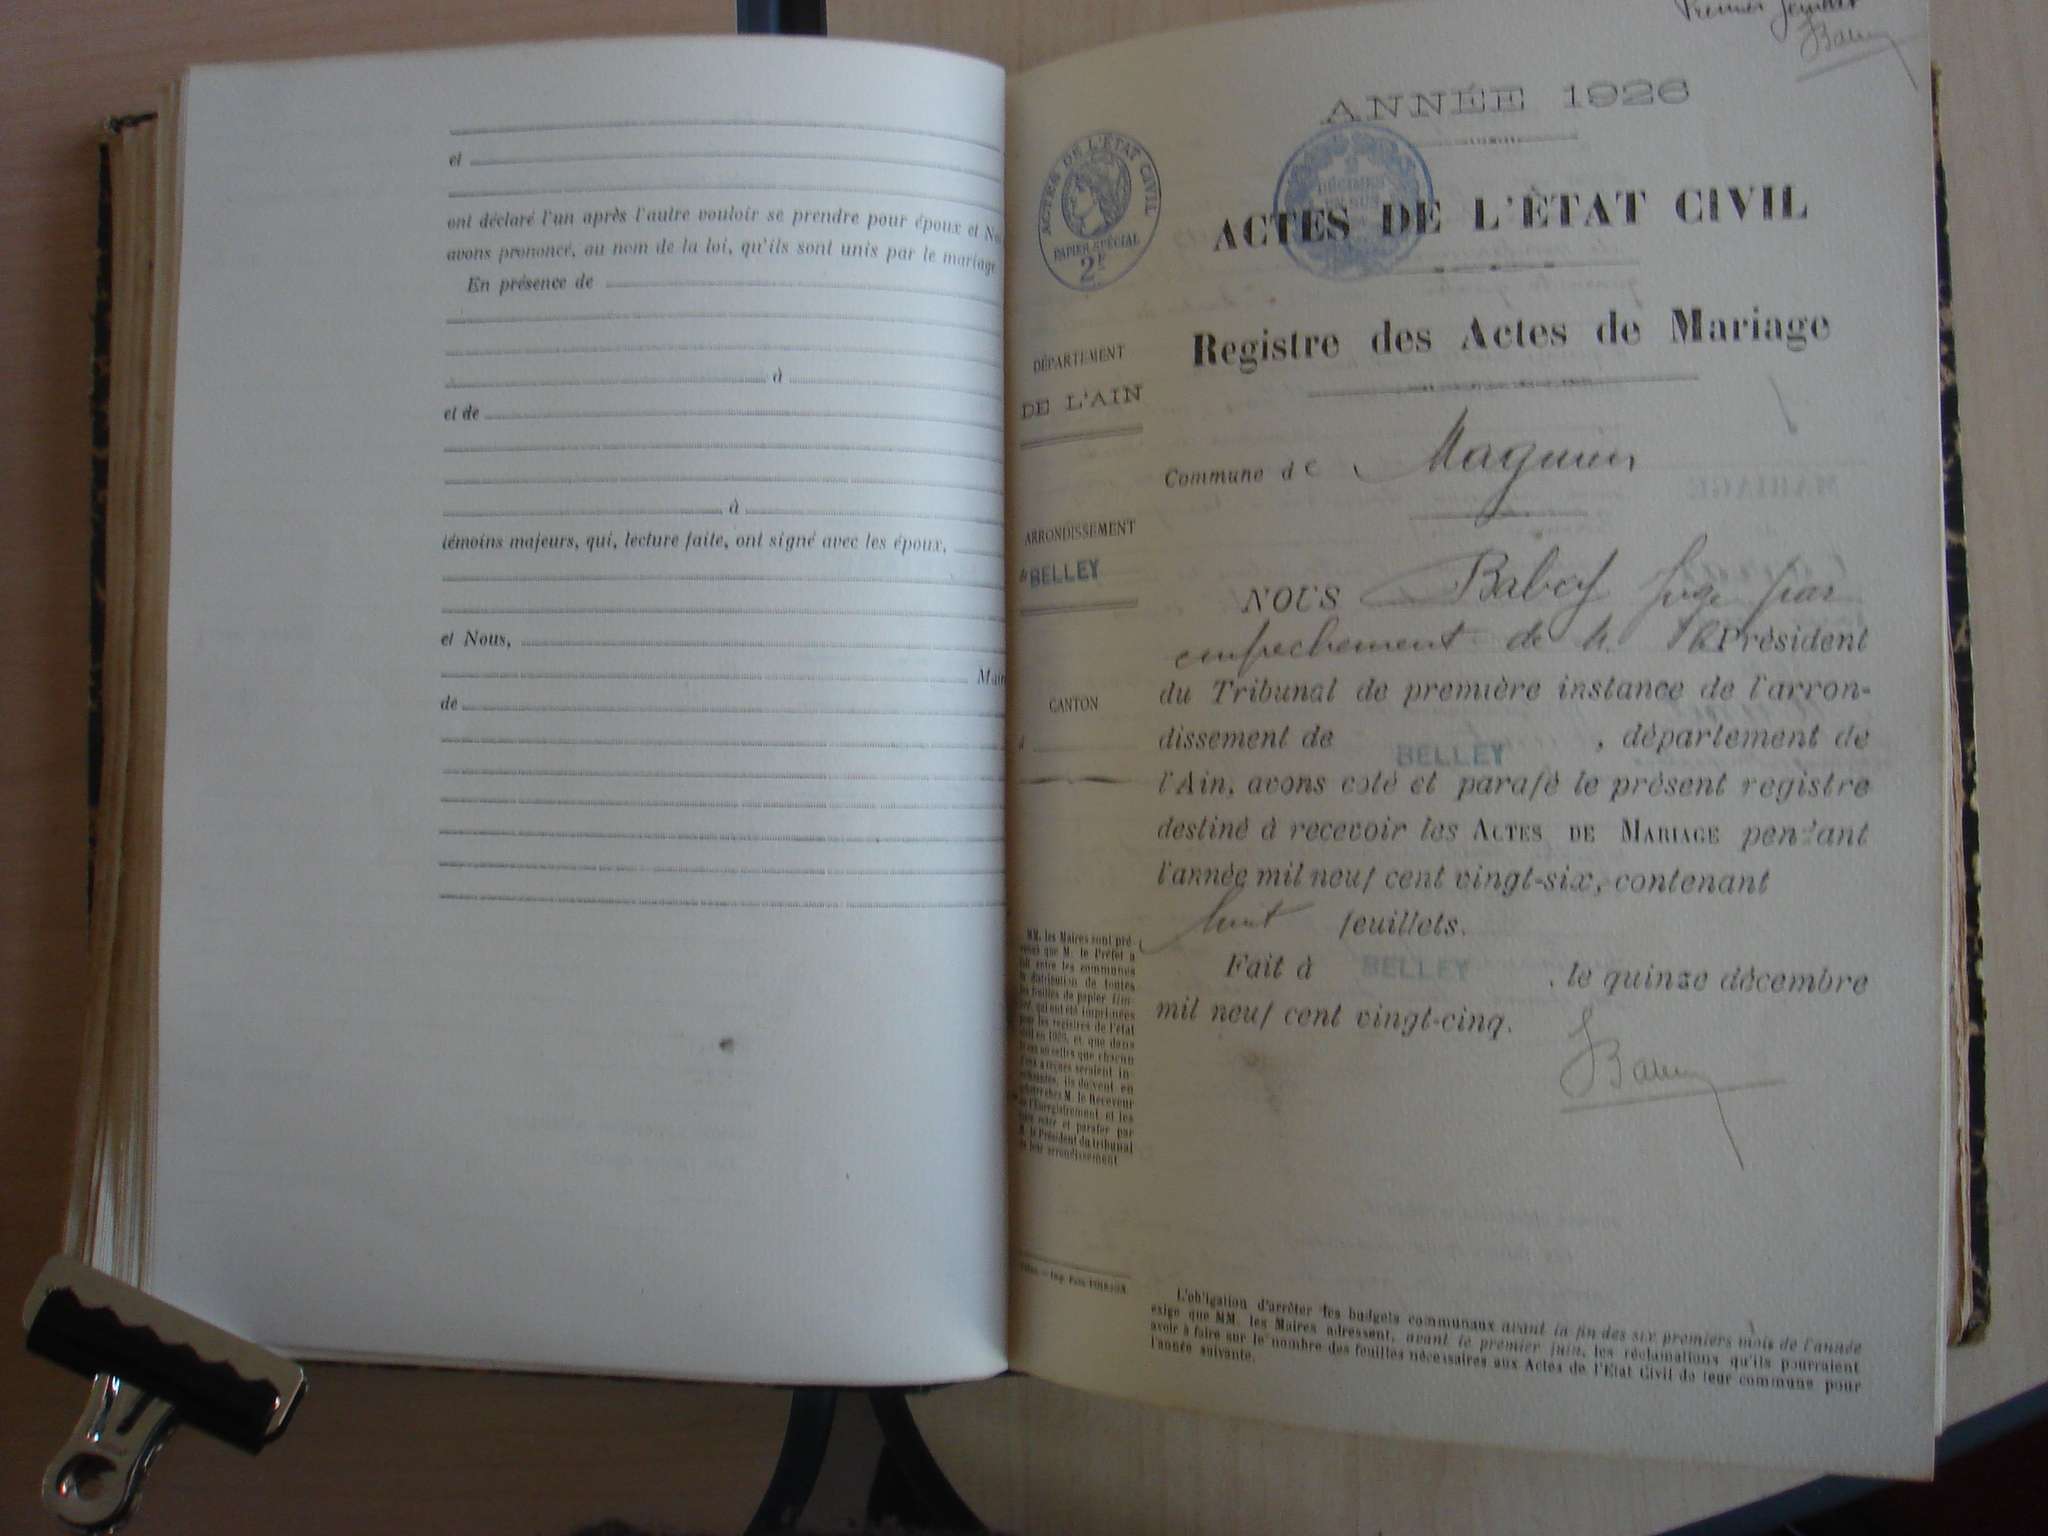 et
ont déclaré l'un après l'autre vouloir se prendre pour époux et
avons prononcé, au nom de la loi, qu'ils sont unis par le mariage
En présence de
à
et de
à
témoins majeurs, qui, lecture faite, ont signé avec les époux,
et Nous,
Mair
de
Premier feuillet
ANNÉE 1926
ACTES DE L'ÉTAT CIVIL
PAPIER SPÉCIAL
2F
2
DÉCIMES
EN SUS
ACTES DE L'ÉTAT CIVIL
Registre des Actes de Mariage
DÉPARTEMENT
DE L'AIN
Commune de Magnieu
ARRONDISSEMENT
de BELLEY
CANTON
NOUS Babey Juge par
empêchement de M. le Président
du Tribunal de première instance de l'arron-
dissement de BELLEY, département de
l'Ain, avons coté et parafé le présent registre
destiné à recevoir les ACTES DE MARIAGE pendant
l'année mil neuf cent vingt-six, contenant
huit feuillets.
Fait à BELLEY, le quinze décembre
mil neuf cent vingt-cinq.
MM. les Maires sont pré-
venus que M. le Préfet a
fait entre les communes
la distribution de toutes
les feuilles de papier tim-
bré, qui ont été imprimées
pour les registres de l'état
civil en 1926, et que dans
le cas où celles que chacun
d'eux a reçues seraient in-
suffisantes, ils doivent en
acheter chez M. le Receveur
de l'Enregistrement et les
faire coter et parafer par
M. le Président du tribunal
de leur arrondissement
L'obligation d'arrêter les budgets communaux avant la fin des six premiers mois de l'année
exige que MM. les Maires adressent, avant le premier juin, les réclamations qu'ils pourraient
avoir à faire sur le nombre des feuilles nécessaires aux Actes de l'Etat Civil de leur commune pour
l'année suivante.